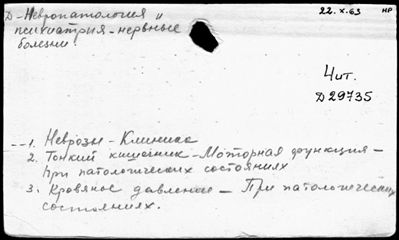 Д-Невропатология и
психиатрия-нервные
болезни
22.X.63 НР
Чит.
Д29735
--1. Неврозы-Клиника
2. Тонкий кишечник-Моторная функция-
при патологических состояниях
3. Кровяное давление - При патологических
состояниях.